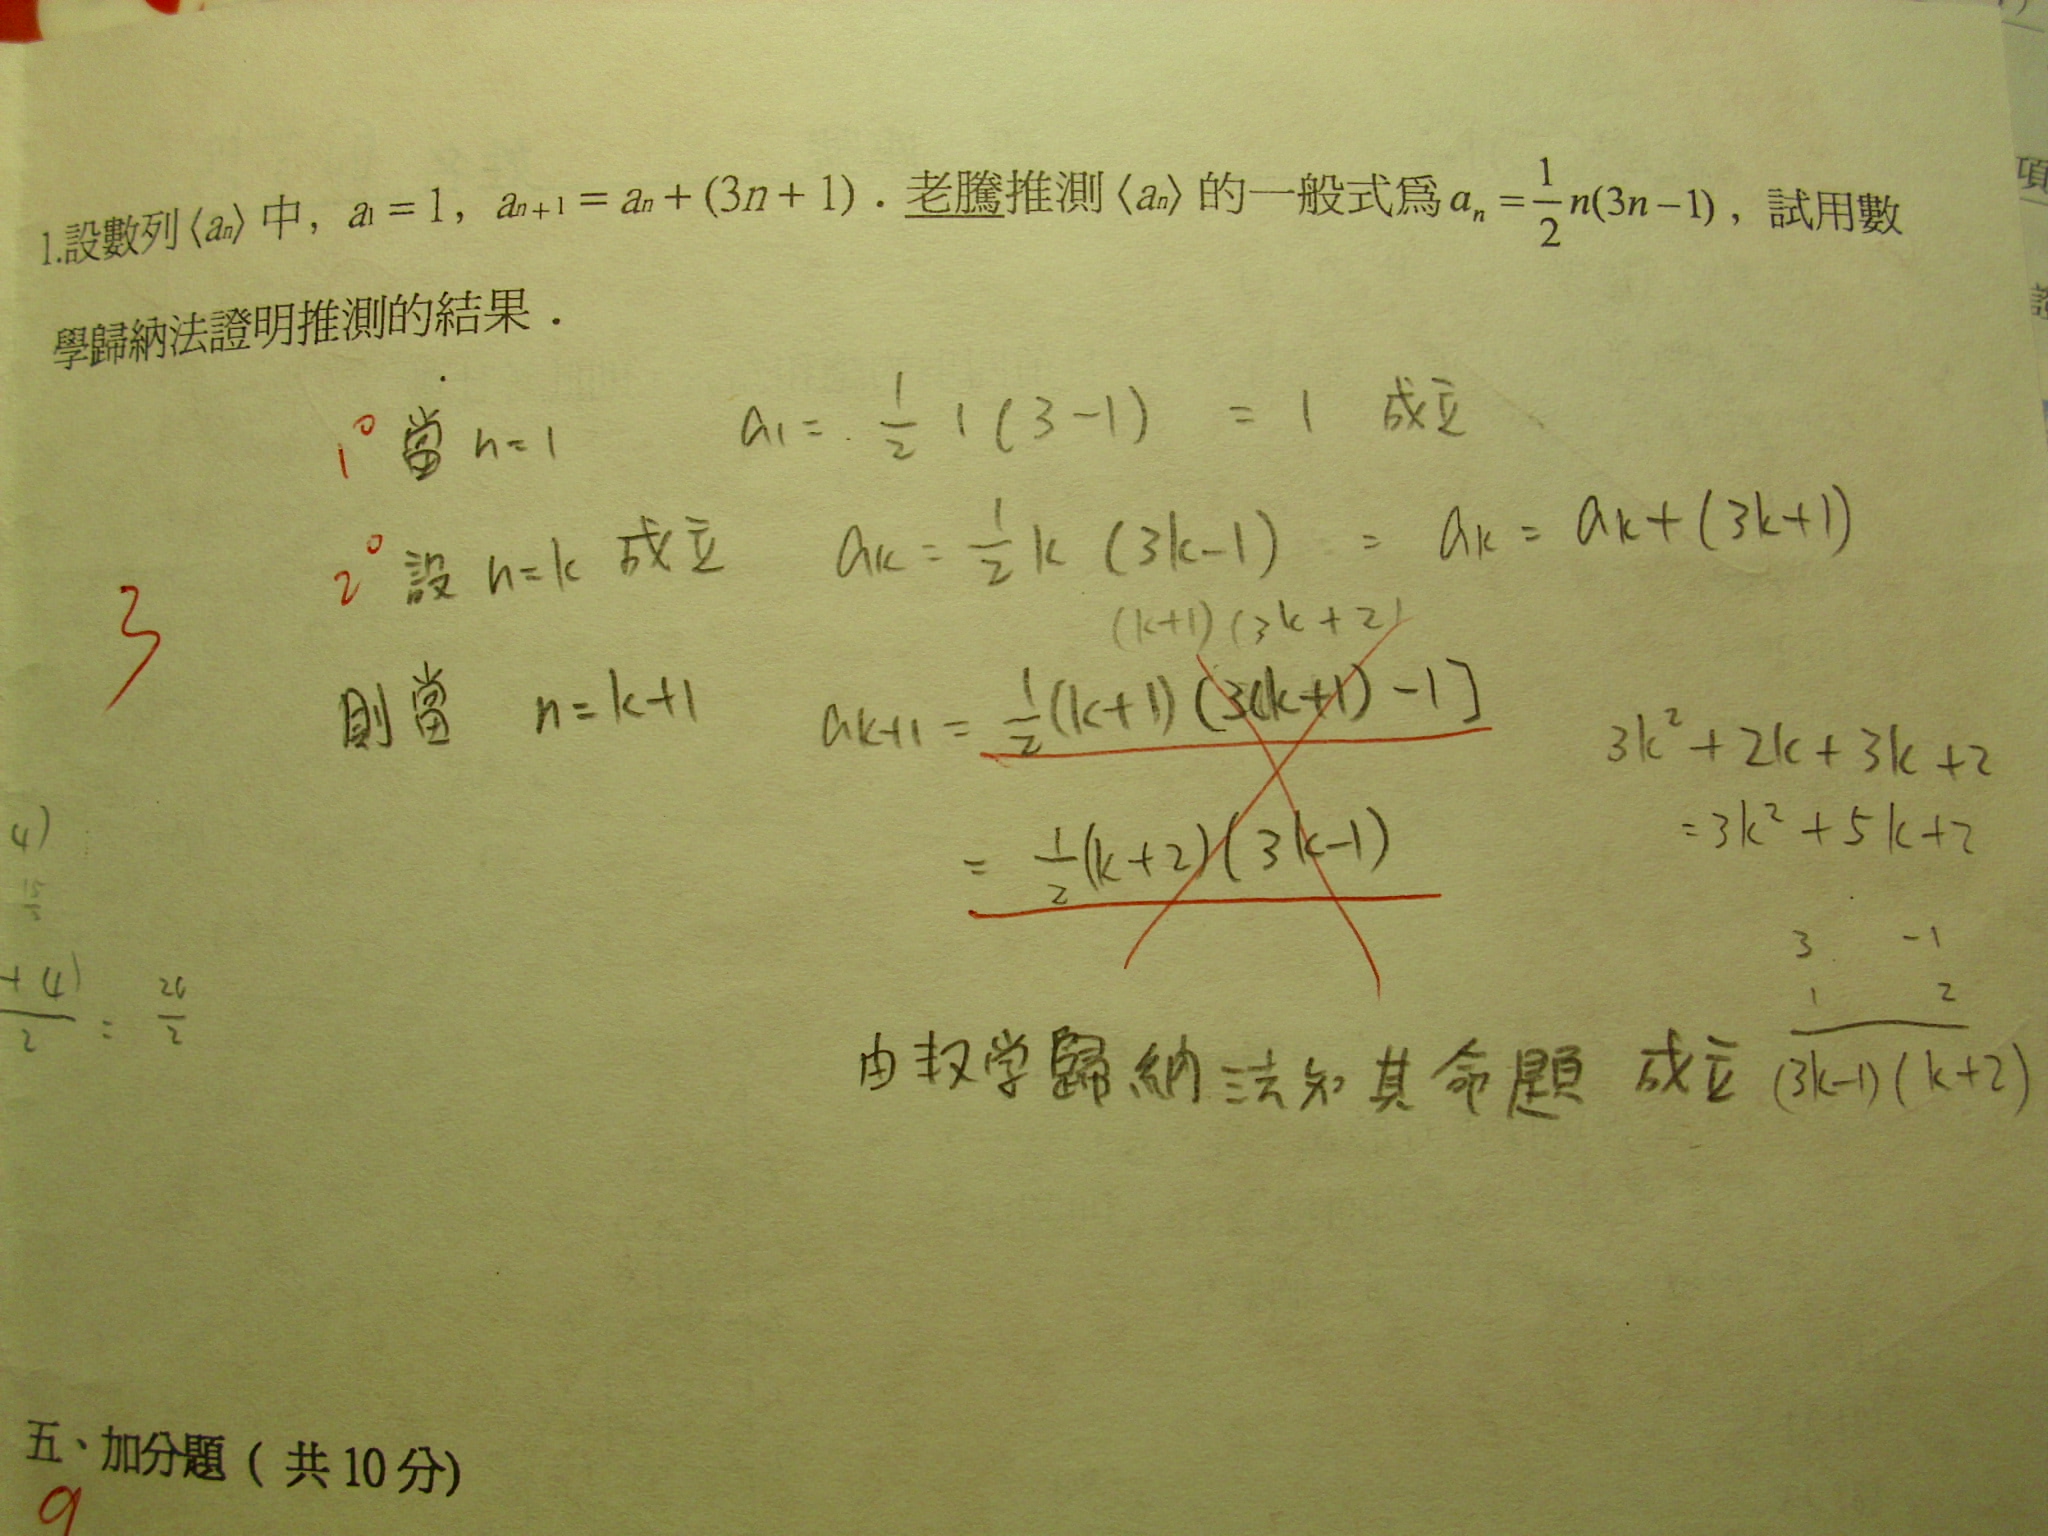 1.設數列⟨an⟩中，a1 = 1，an+1 = an + (3n + 1)．老騰推測⟨an⟩的一般式為 an = 1/2 n(3n−1)，試用數
學歸納法證明推測的結果．
1° 當 n=1 a1 = 1/2 1 (3-1) = 1 成立
2° 設 n=k 成立 ak = 1/2 k (3k-1) = ak = ak+(3k+1)
(k+1) (3k+2)
3
則當 n=k+1 ak+1 = 1/2 (k+1) (3(k+1) -1]
3k²+2k+3k+2
= 1/2 (k+2) (3k-1)
=3k²+5k+2
4)
3 -1
1 2
+4)/2 = 26/2
由권学歸納法知其命題 成立
(3k-1) (k+2)
五、加分題 ( 共 10 分)
9